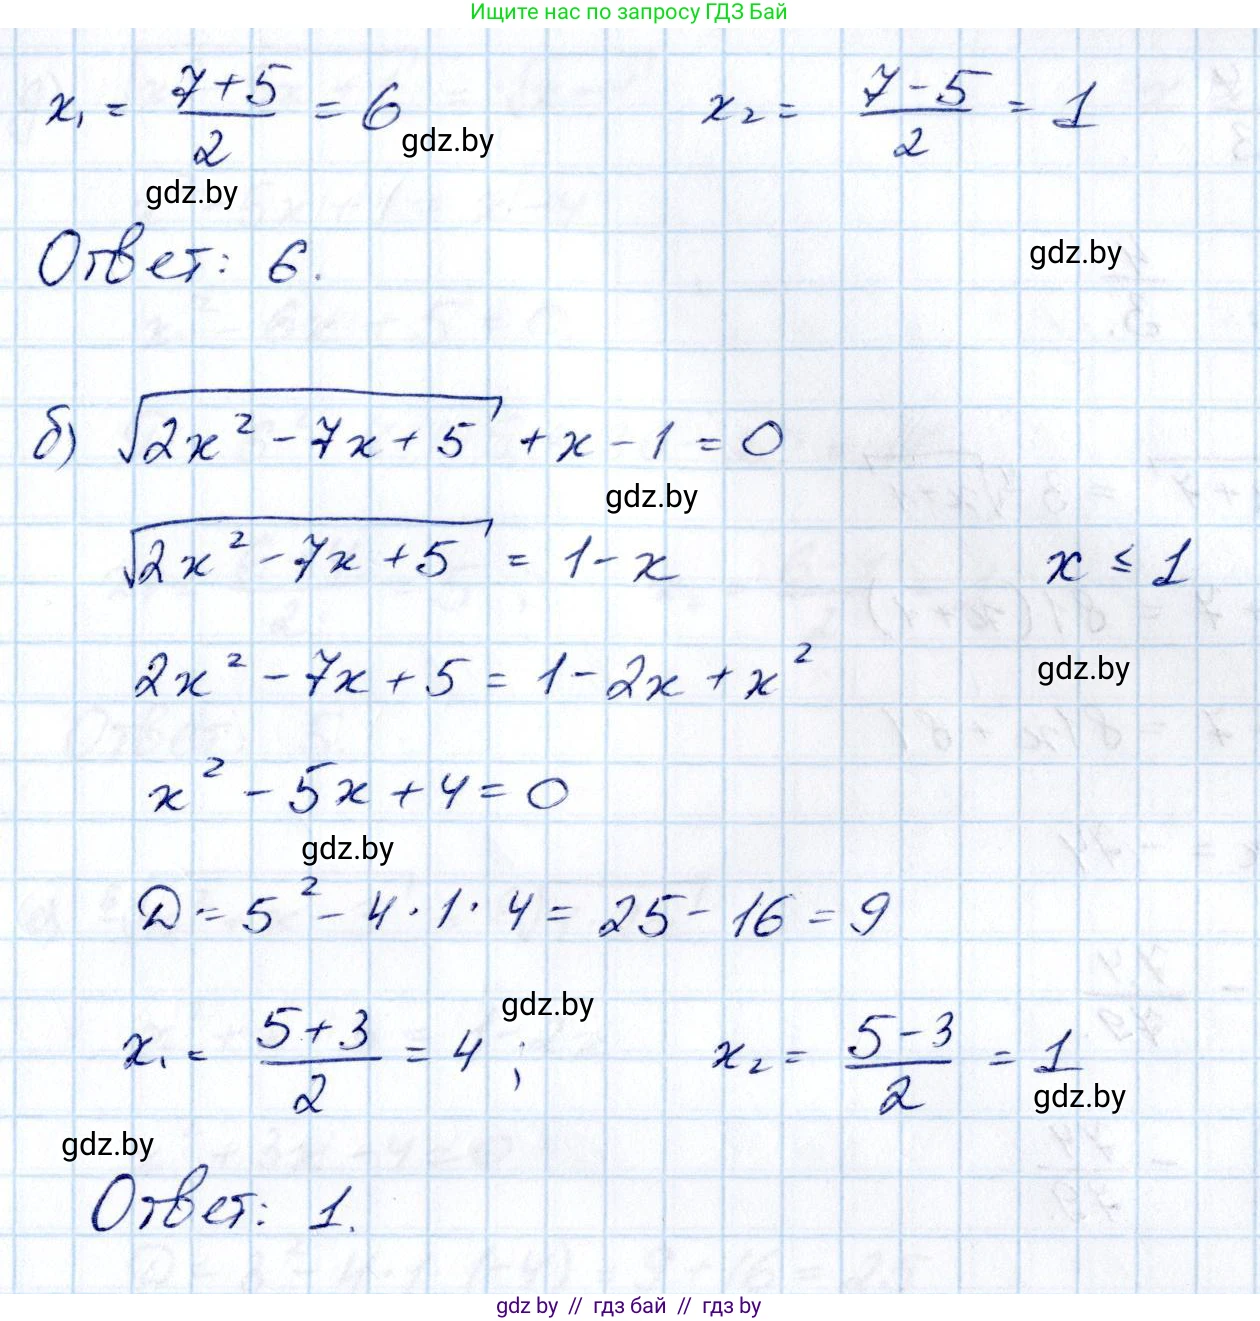 Ищите нас по запросу ГДЗ Бай
x₁ = (7+5)/2 = 6 x₂ = (7-5)/2 = 1
gdz.by
gdz.by
Ответ: 6.
gdz.by
б) √(2x² - 7x + 5) + x - 1 = 0
gdz.by
√(2x² - 7x + 5) = 1 - x x ≤ 1
2x² - 7x + 5 = 1 - 2x + x²
gdz.by
x² - 5x + 4 = 0
gdz.by
D = 5² - 4 · 1 · 4 = 25 - 16 = 9
gdz.by
x₁ = (5+3)/2 = 4 ; x₂ = (5-3)/2 = 1
gdz.by
gdz.by
Ответ: 1.
gdz by // гдз бай // гдз by